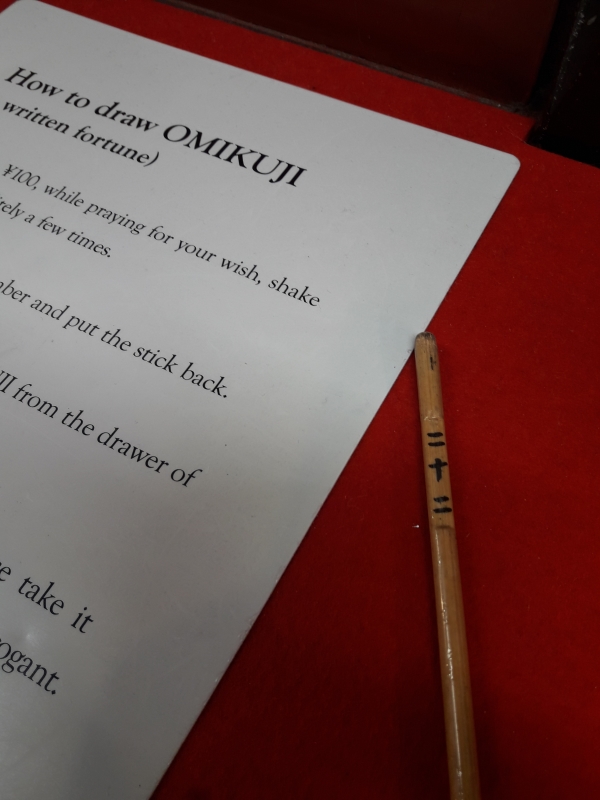 How to draw OMIKUJI
written fortune)
¥100, while praying for your wish, shake
a few times.
and put the stick back.
from the drawer of
take it
二十二